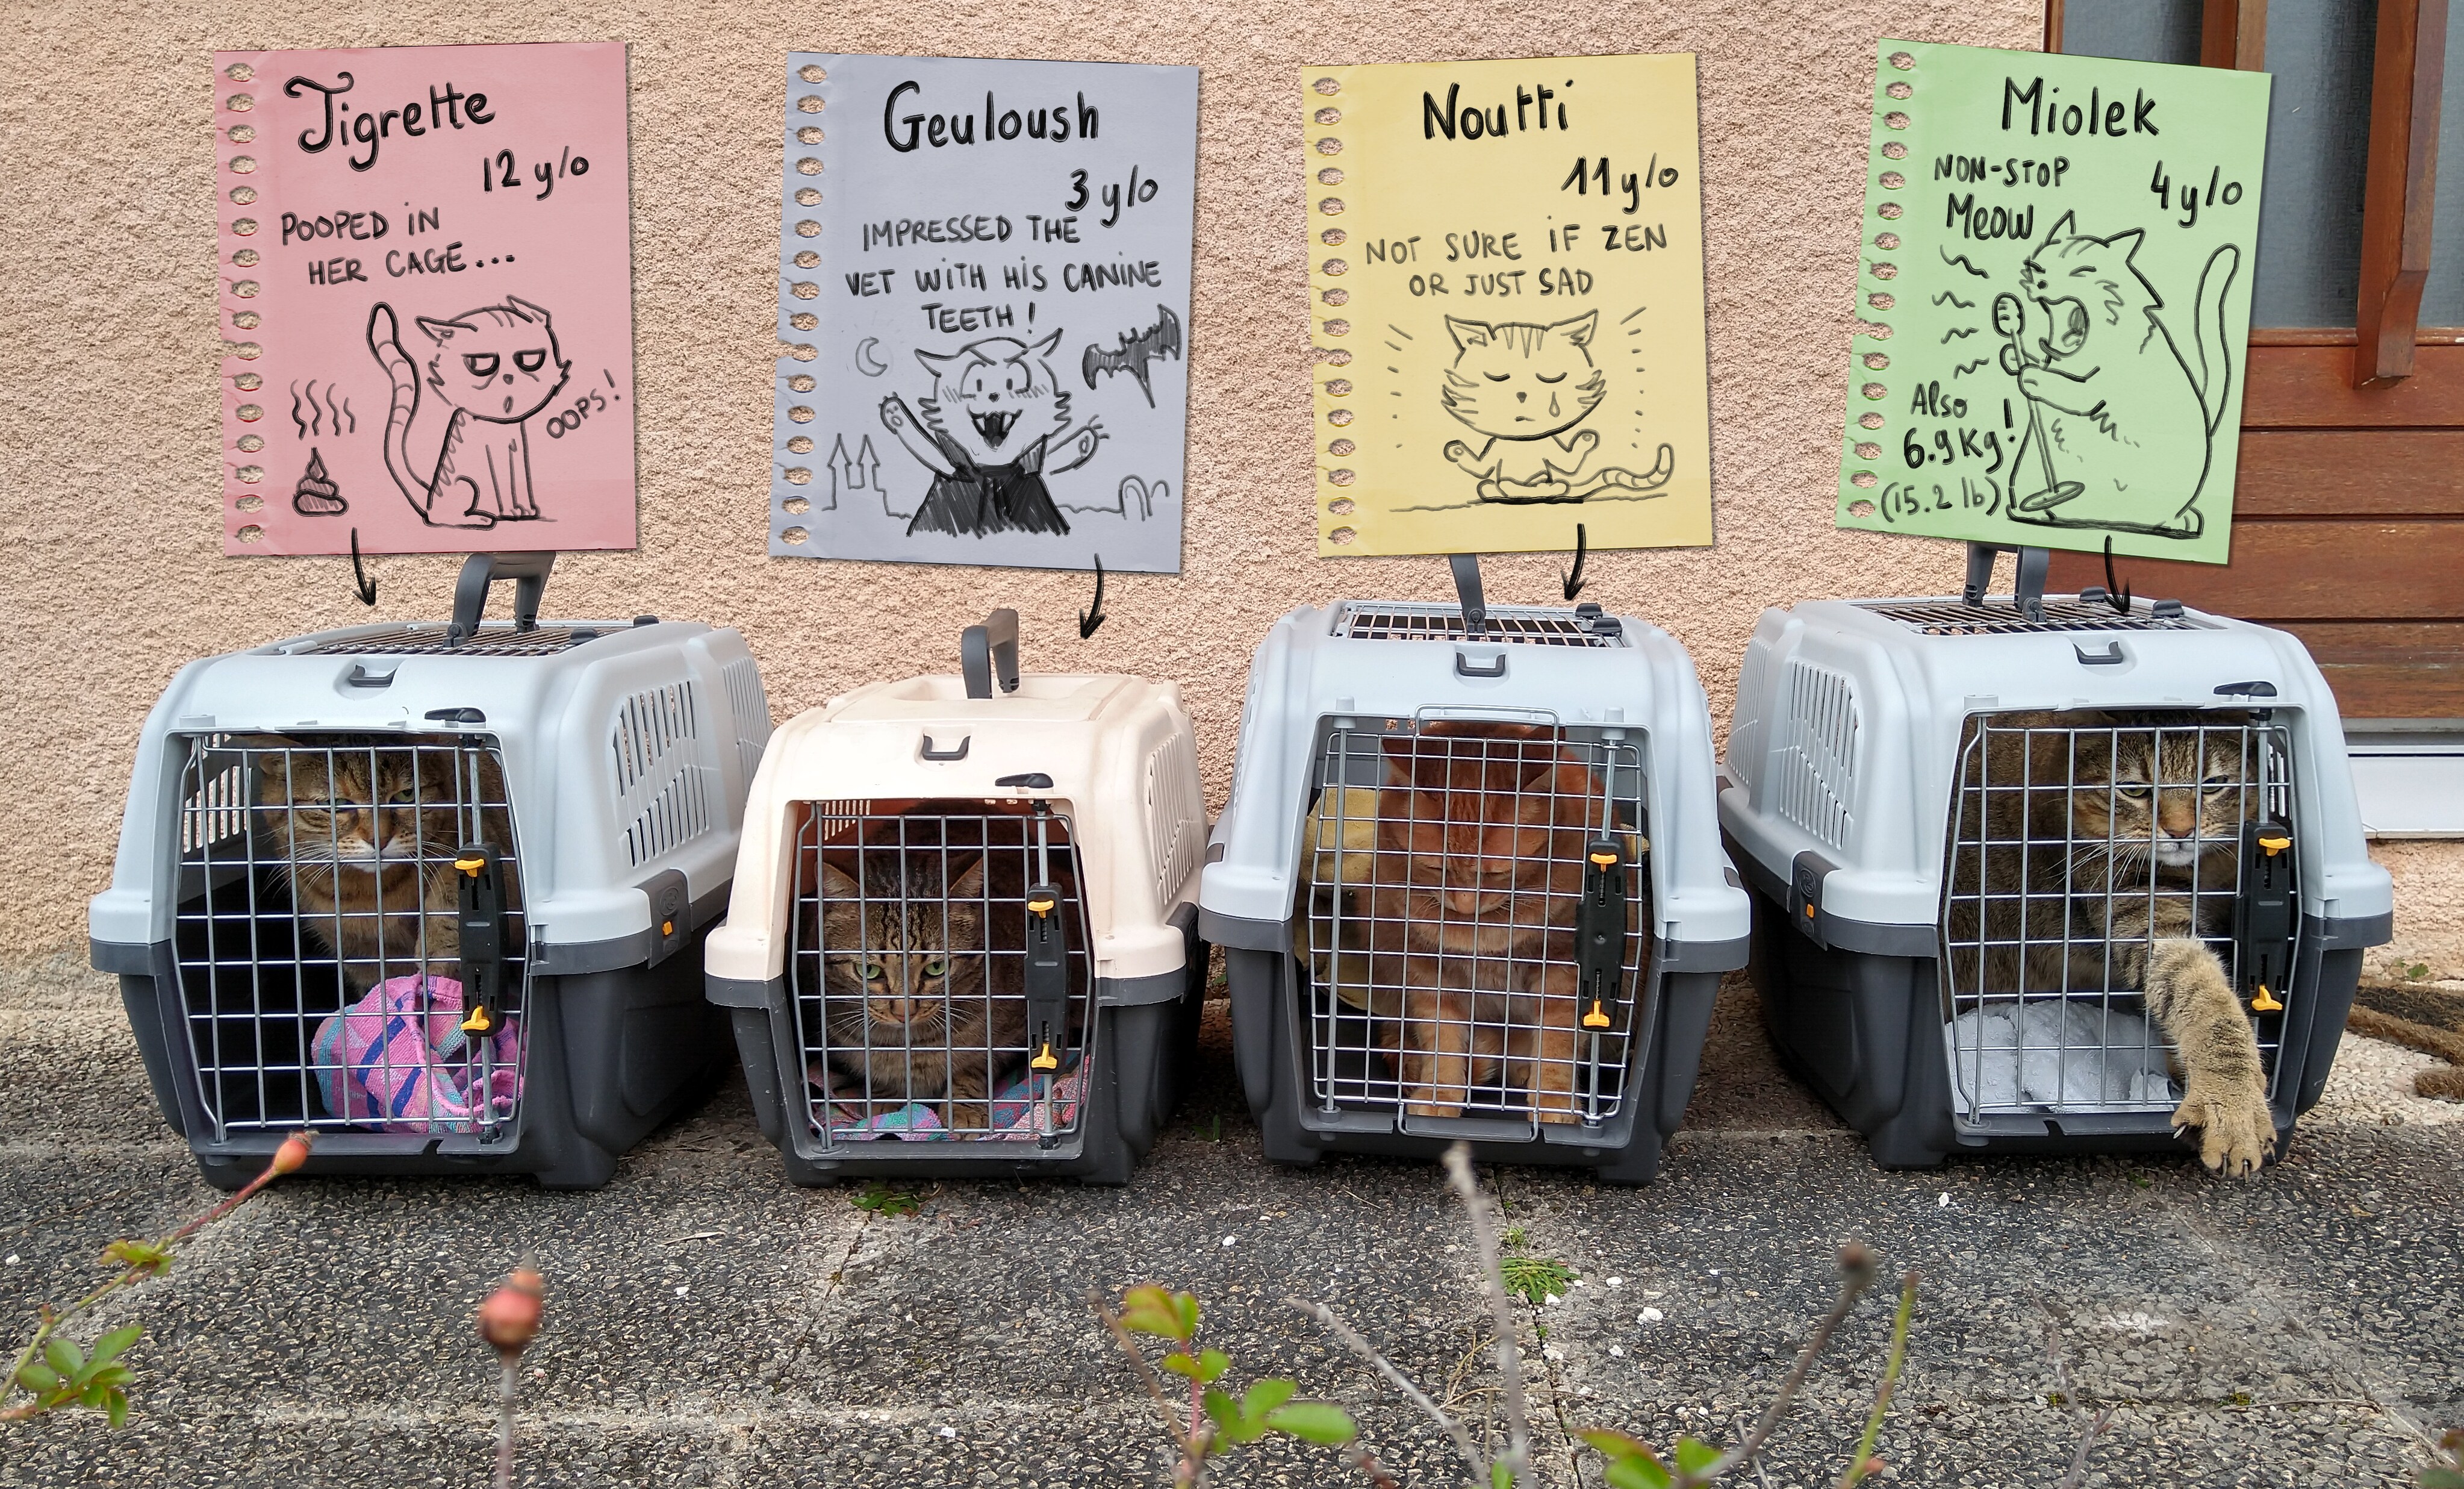 Tigrette
12 y/o
POOPED IN
HER CAGE...
OOPS!
Geuloush
3 y/o
IMPRESSED THE
VET WITH HIS CANINE
TEETH!
Noutti
11 y/o
NOT SURE IF ZEN
OR JUST SAD
Miolek
4 y/o
NON-STOP
MEOW
Also
6.9Kg!
(15.2 lb)